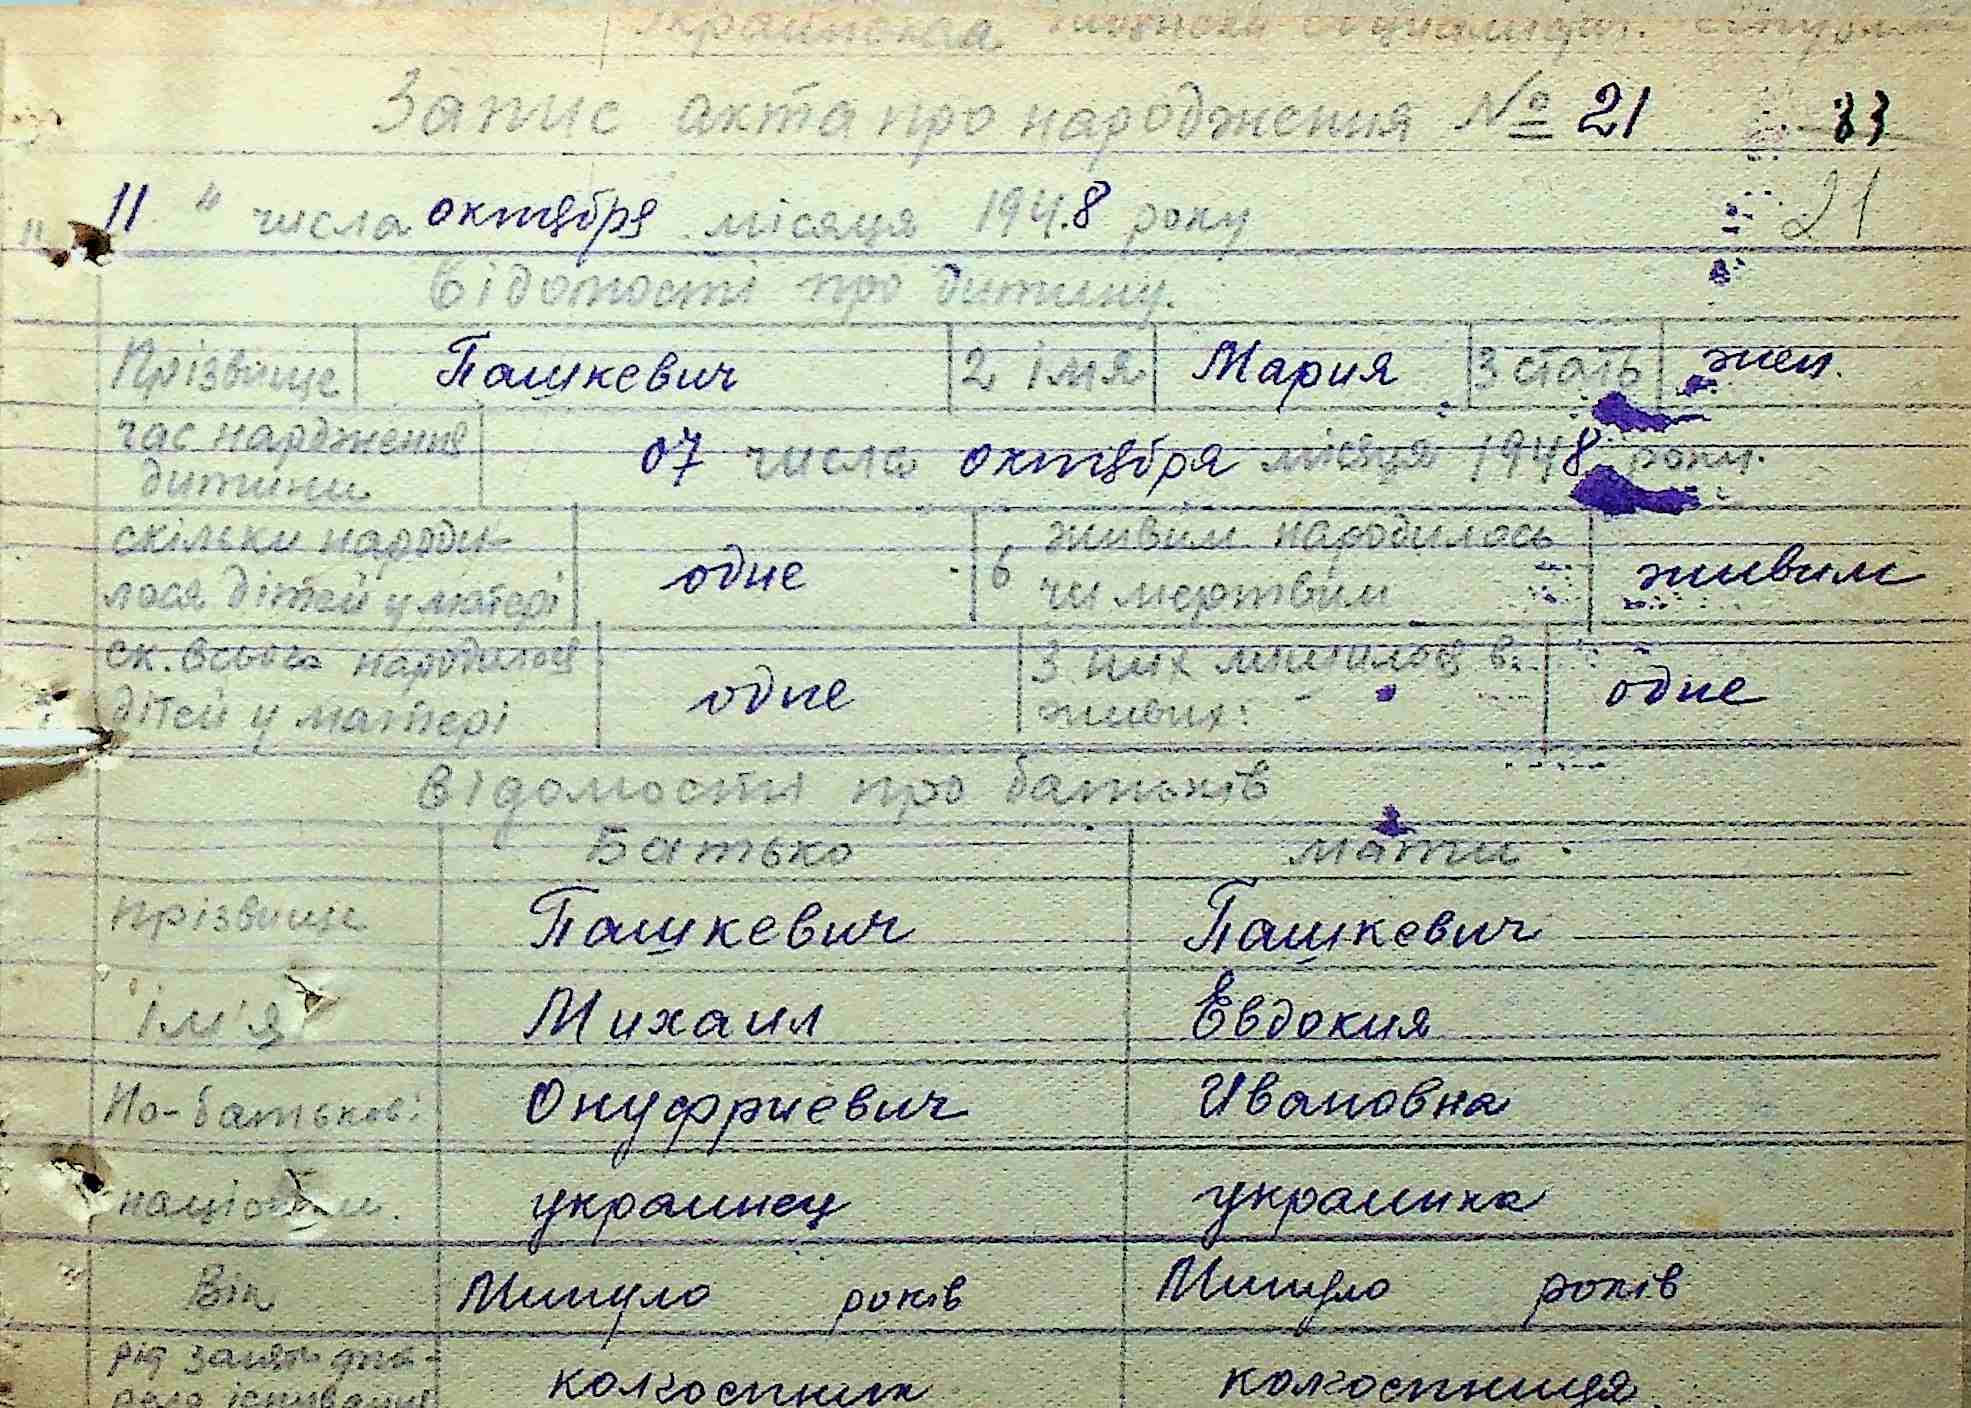 Украинская
Запис акта про народження № 21 33
11 " числа октября місяця 1948 року 21
Відомості про дитину.
Прізвище Пашкевич 2 імя Мария 3 стать жен.
час народження 07 числа октября місяця 1948 року.
дитини
скільки народи- одне 6 живим народилось живим
лося дітей у матері чи мертвим
ск. всього народилось одне З них лишилось в одне
дітей у матері живих:
відомости про батьків
Батько мати
прізвище Пашкевич Пашкевич
ім'я Михаил Евдокия
По-батькові: Онуфриевич Ивановна
націон. украинец украинка
Вік Минуло років Минуло років
рід занять колхостник колхостница